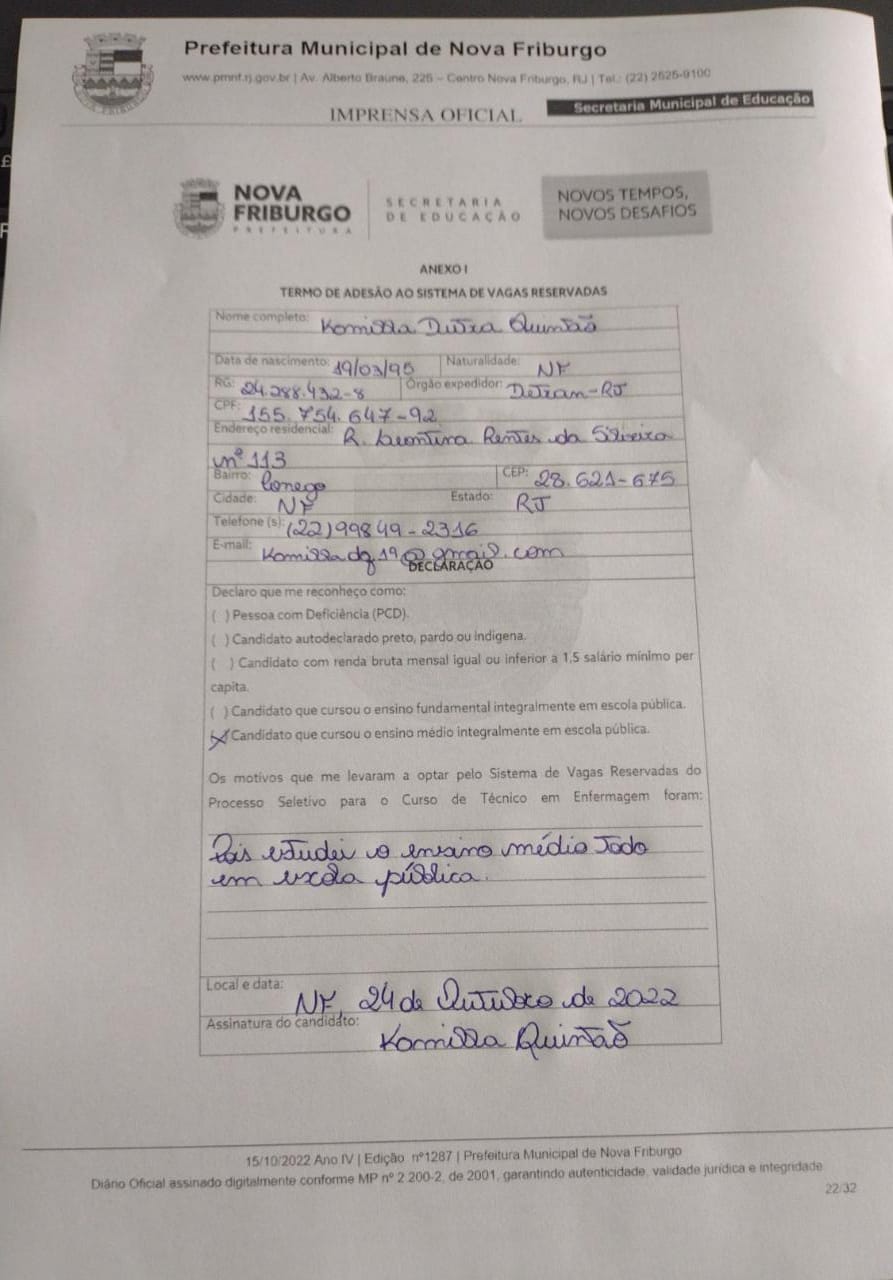 Prefeitura Municipal de Nova Friburgo
www.pmnf.rj.gov.br | Av. Alberto Braune, 225 – Centro Nova Friburgo, RJ | Tel.: (22) 2525-9100
IMPRENSA OFICIAL
Secretaria Municipal de Educação
NOVA FRIBURGO
PREFEITURA
SECRETARIA
DE EDUCAÇÃO
NOVOS TEMPOS,
NOVOS DESAFIOS
ANEXO I
TERMO DE ADESÃO AO SISTEMA DE VAGAS RESERVADAS
Nome completo: Komilla Dutra Quintão
Data de nascimento: 19/03/95 Naturalidade: NF
RG: 24.288.432-8 Órgão expedidor: Detran-RJ
CPF: 155.754.647-92
Endereço residencial: R. Leontina Rentes da Silveira
nº 113
Bairro: Conego CEP: 28.621-675
Cidade: NF Estado: RJ
Telefone (s): (22) 99849-2316
E-mail: Komilladq19@gmail.com
DECLARAÇÃO
Declaro que me reconheço como:
( ) Pessoa com Deficiência (PCD).
( ) Candidato autodeclarado preto, pardo ou indígena.
( ) Candidato com renda bruta mensal igual ou inferior a 1,5 salário mínimo per
capita.
( ) Candidato que cursou o ensino fundamental integralmente em escola pública.
(X) Candidato que cursou o ensino médio integralmente em escola pública.
Os motivos que me levaram a optar pelo Sistema de Vagas Reservadas do
Processo Seletivo para o Curso de Técnico em Enfermagem foram:
Pois estudei o ensino médio todo
em escola pública.
Local e data: NF, 24 de Outubro de 2022
Assinatura do candidato: Komilla Quintão
15/10/2022 Ano IV | Edição nº1287 | Prefeitura Municipal de Nova Friburgo
Diário Oficial assinado digitalmente conforme MP nº 2.200-2, de 2001, garantindo autenticidade, validade jurídica e integridade
22/32